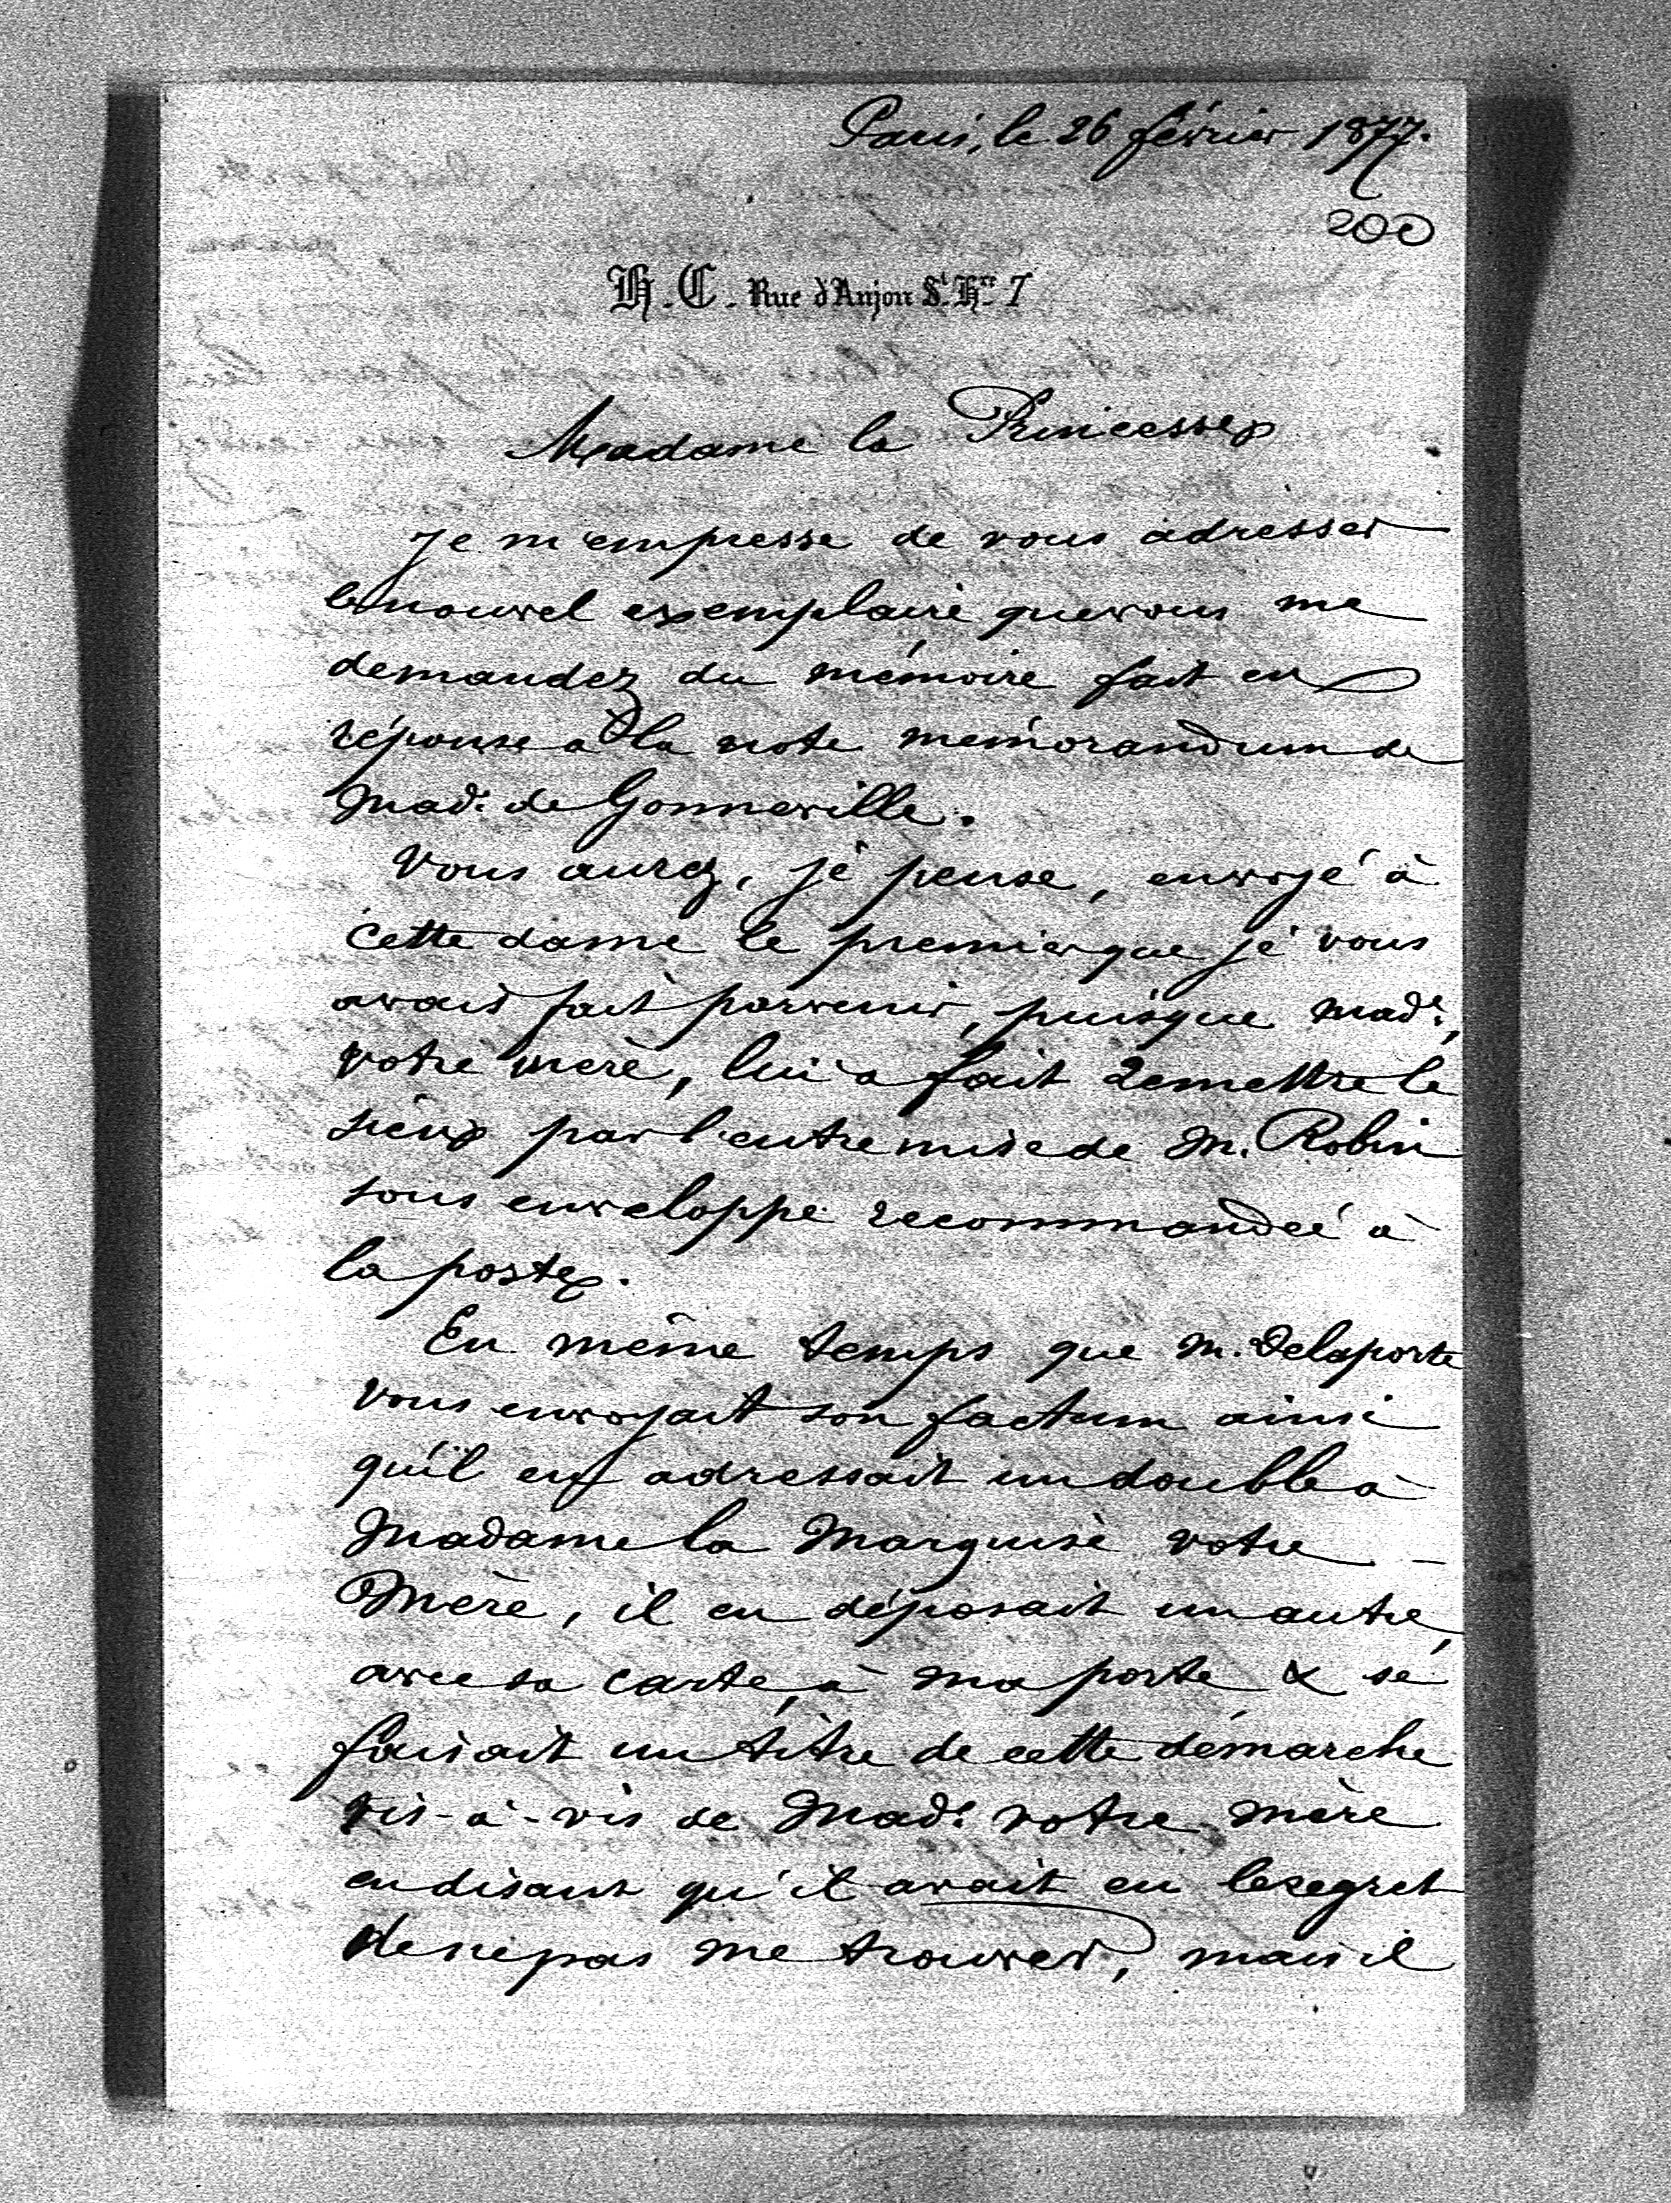 Paris, le 26 février 1877.
200
H. C. Rue d'Anjou St. Hré. 7
Madame la Princesse
Je m'empresse de vous adresser
le nouvel exemplaire que vous me
demandez du mémoire fait en
réponse à la note mémorandum de
Made. de Gonneville.
Vous aurez, je pense, envoyé à
cette dame le premier que je vous
avais fait parvenir, puisque Made.,
votre mère, lui a fait remettre le
sien par l'entremise de M. Robin
sous enveloppe recommandée à
la poste.
En même temps que M. Delaporte
vous envoyait son factum ainsi
qu'il en adressait un double à
Madame la Marquise votre
Mère, il en déposait un autre,
avec sa carte, à ma porte & se
faisait un titre de cette démarche
vis-à-vis de Made. votre mère
en disant qu'il avait eu le regret
de ne pas me trouver, mais il